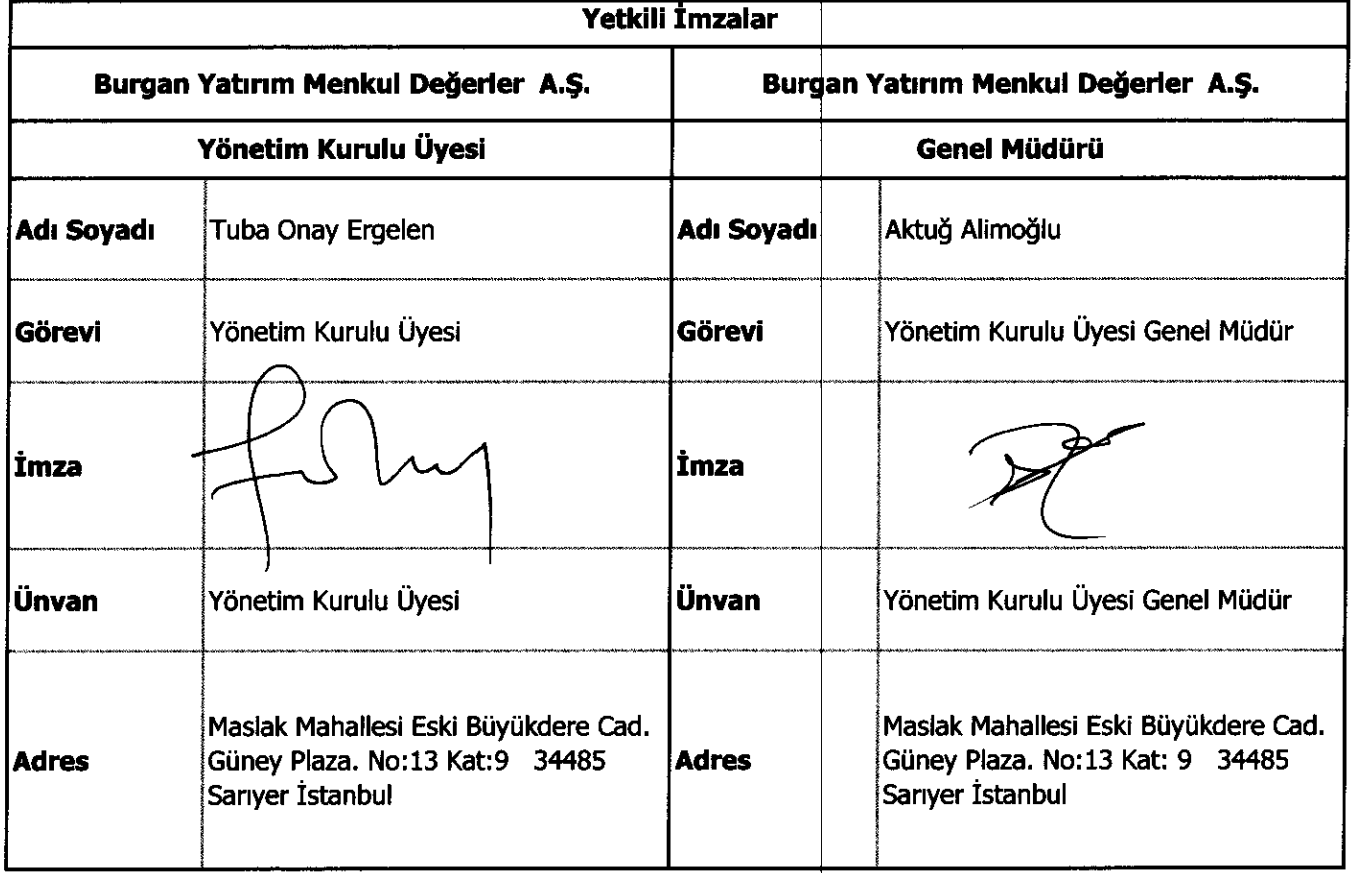 Yetkili İmzalar
Burgan Yatırım Menkul Değerler A.Ş. Burgan Yatırım Menkul Değerler A.Ş.
Yönetim Kurulu Üyesi Genel Müdürü
Adı Soyadı Tuba Onay Ergelen Adı Soyadı Aktuğ Alimoğlu
Görevi Yönetim Kurulu Üyesi Görevi Yönetim Kurulu Üyesi Genel Müdür
İmza İmza
Ünvan Yönetim Kurulu Üyesi Ünvan Yönetim Kurulu Üyesi Genel Müdür
Adres Maslak Mahallesi Eski Büyükdere Cad.
Güney Plaza. No:13 Kat:9 34485
Sarıyer İstanbul
Adres Maslak Mahallesi Eski Büyükdere Cad.
Güney Plaza. No:13 Kat: 9 34485
Sarıyer İstanbul